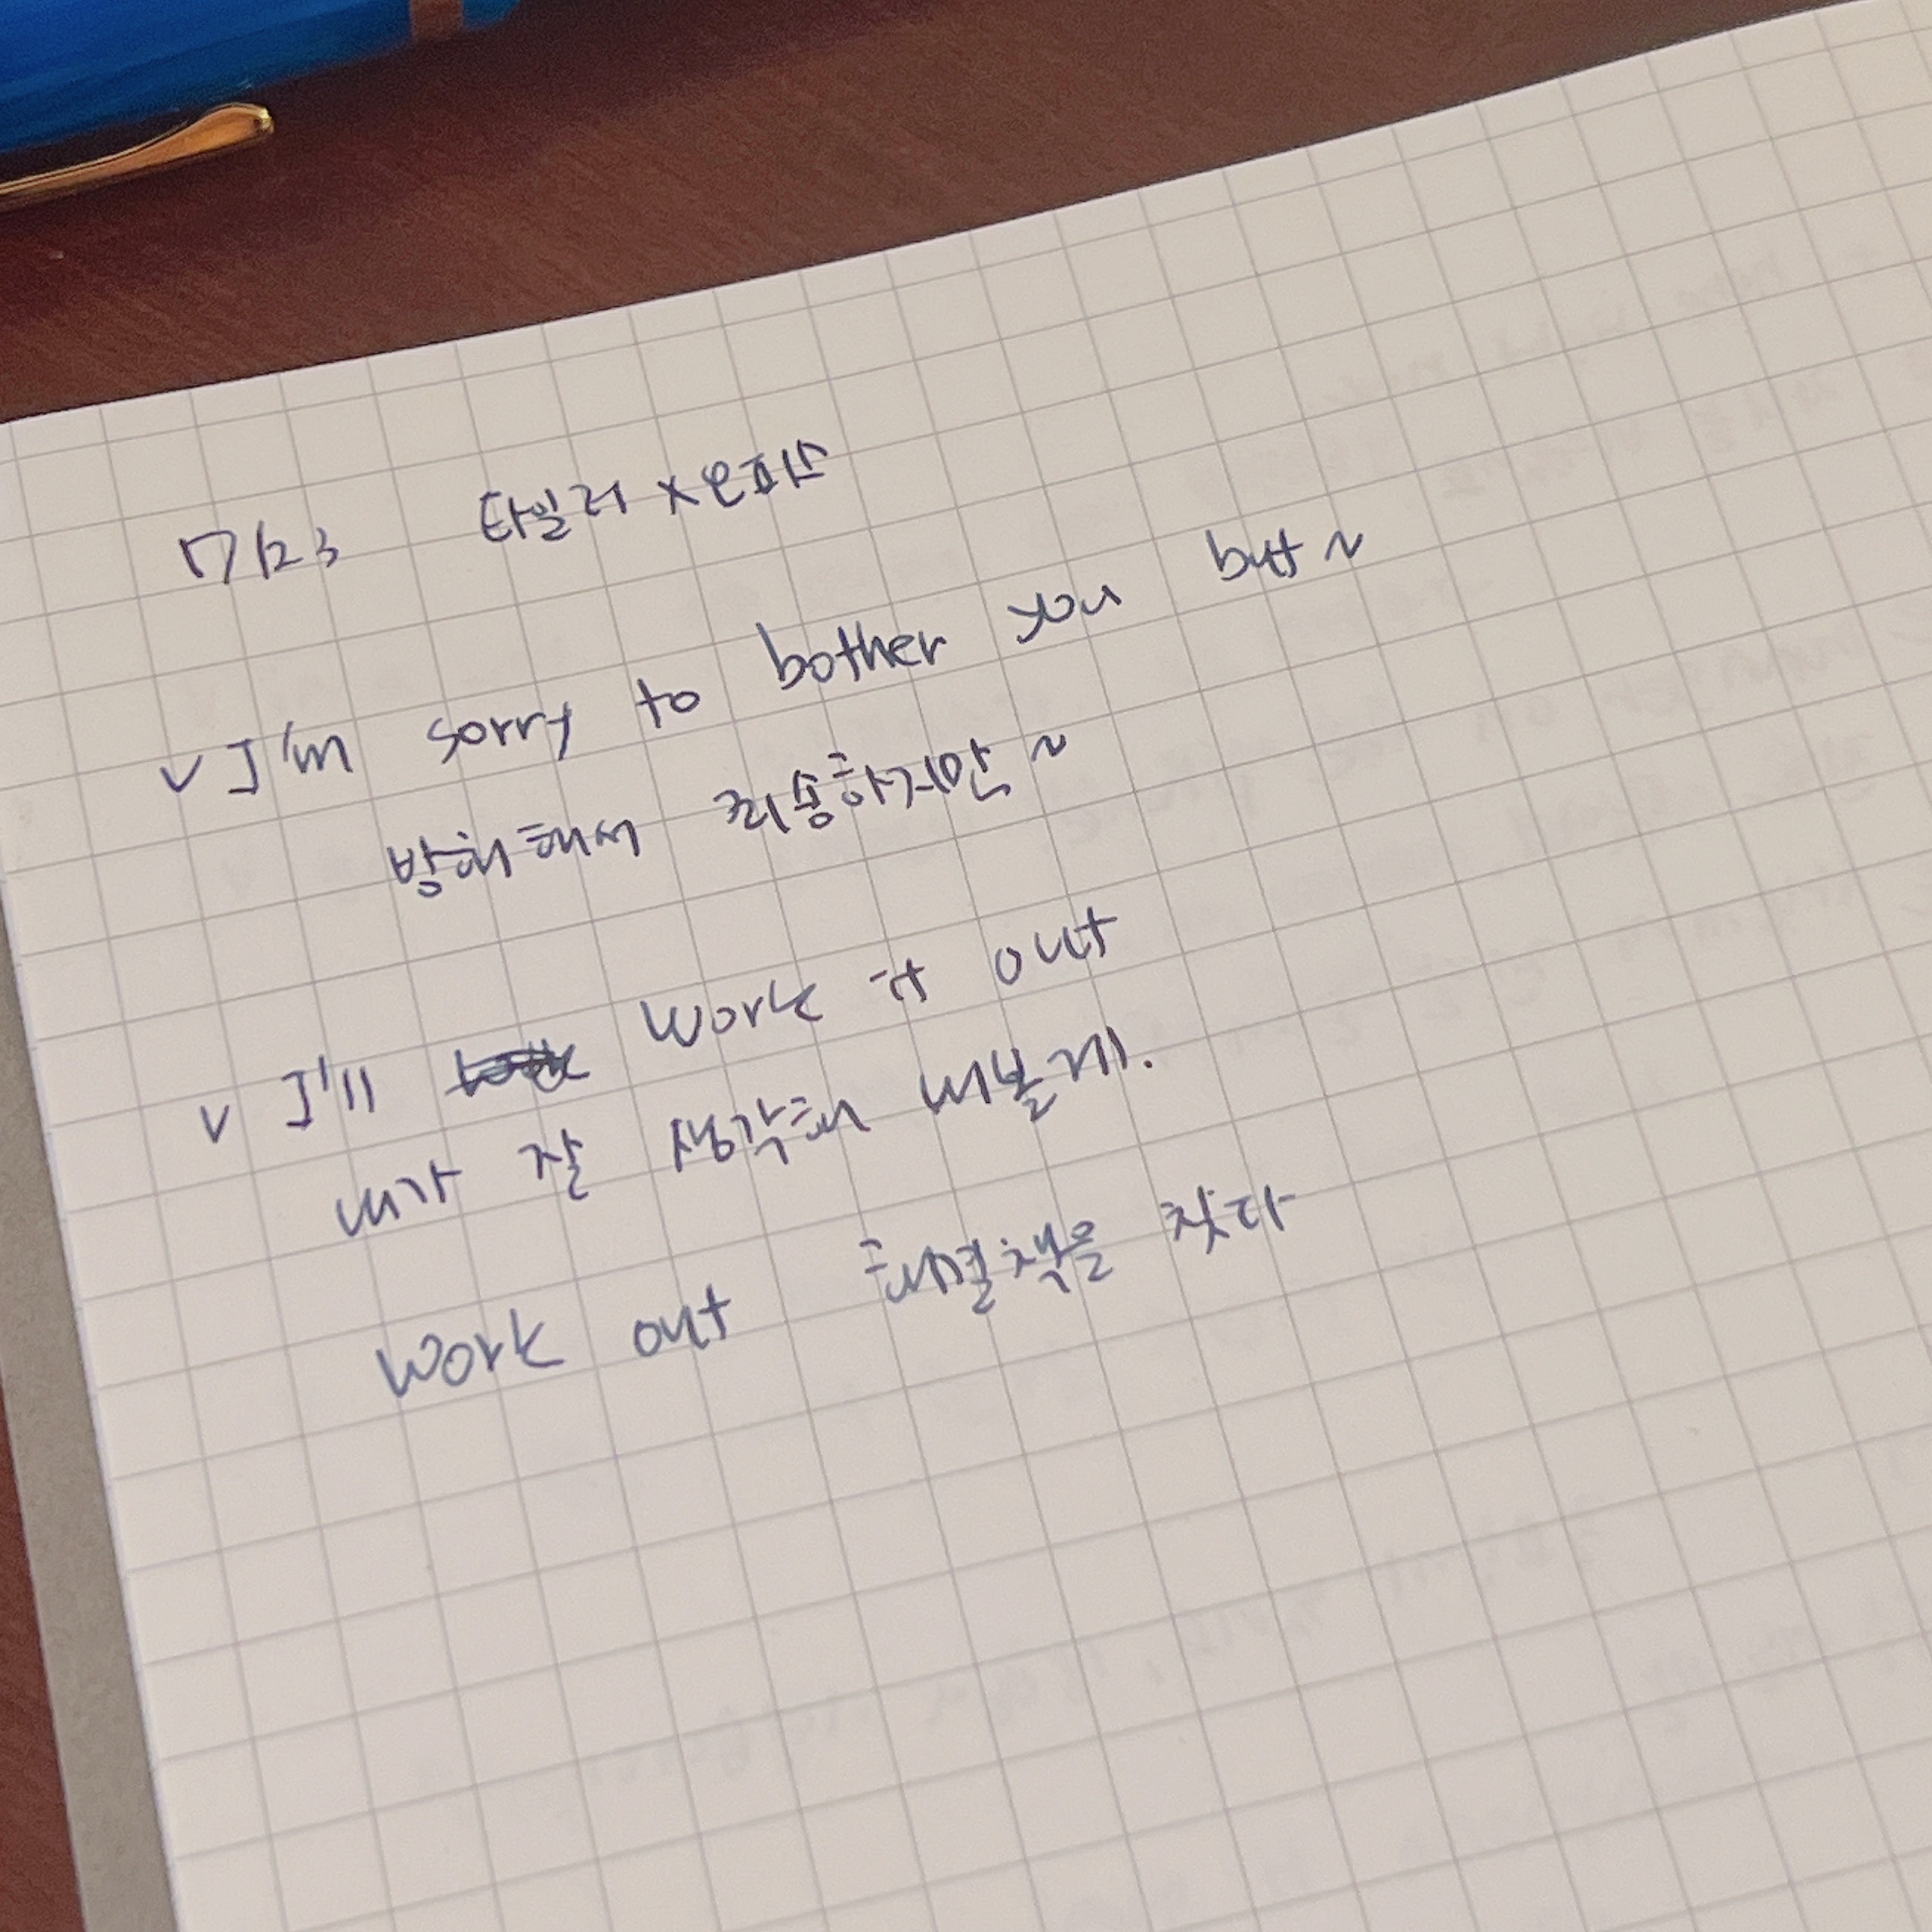 7/23 타일러 x 오파스
v I'm sorry to bother you but ~
방해해서 죄송하지만 ~
v I'll work it out
내가 잘 생각해 내볼게.
work out 해결책을 찾다